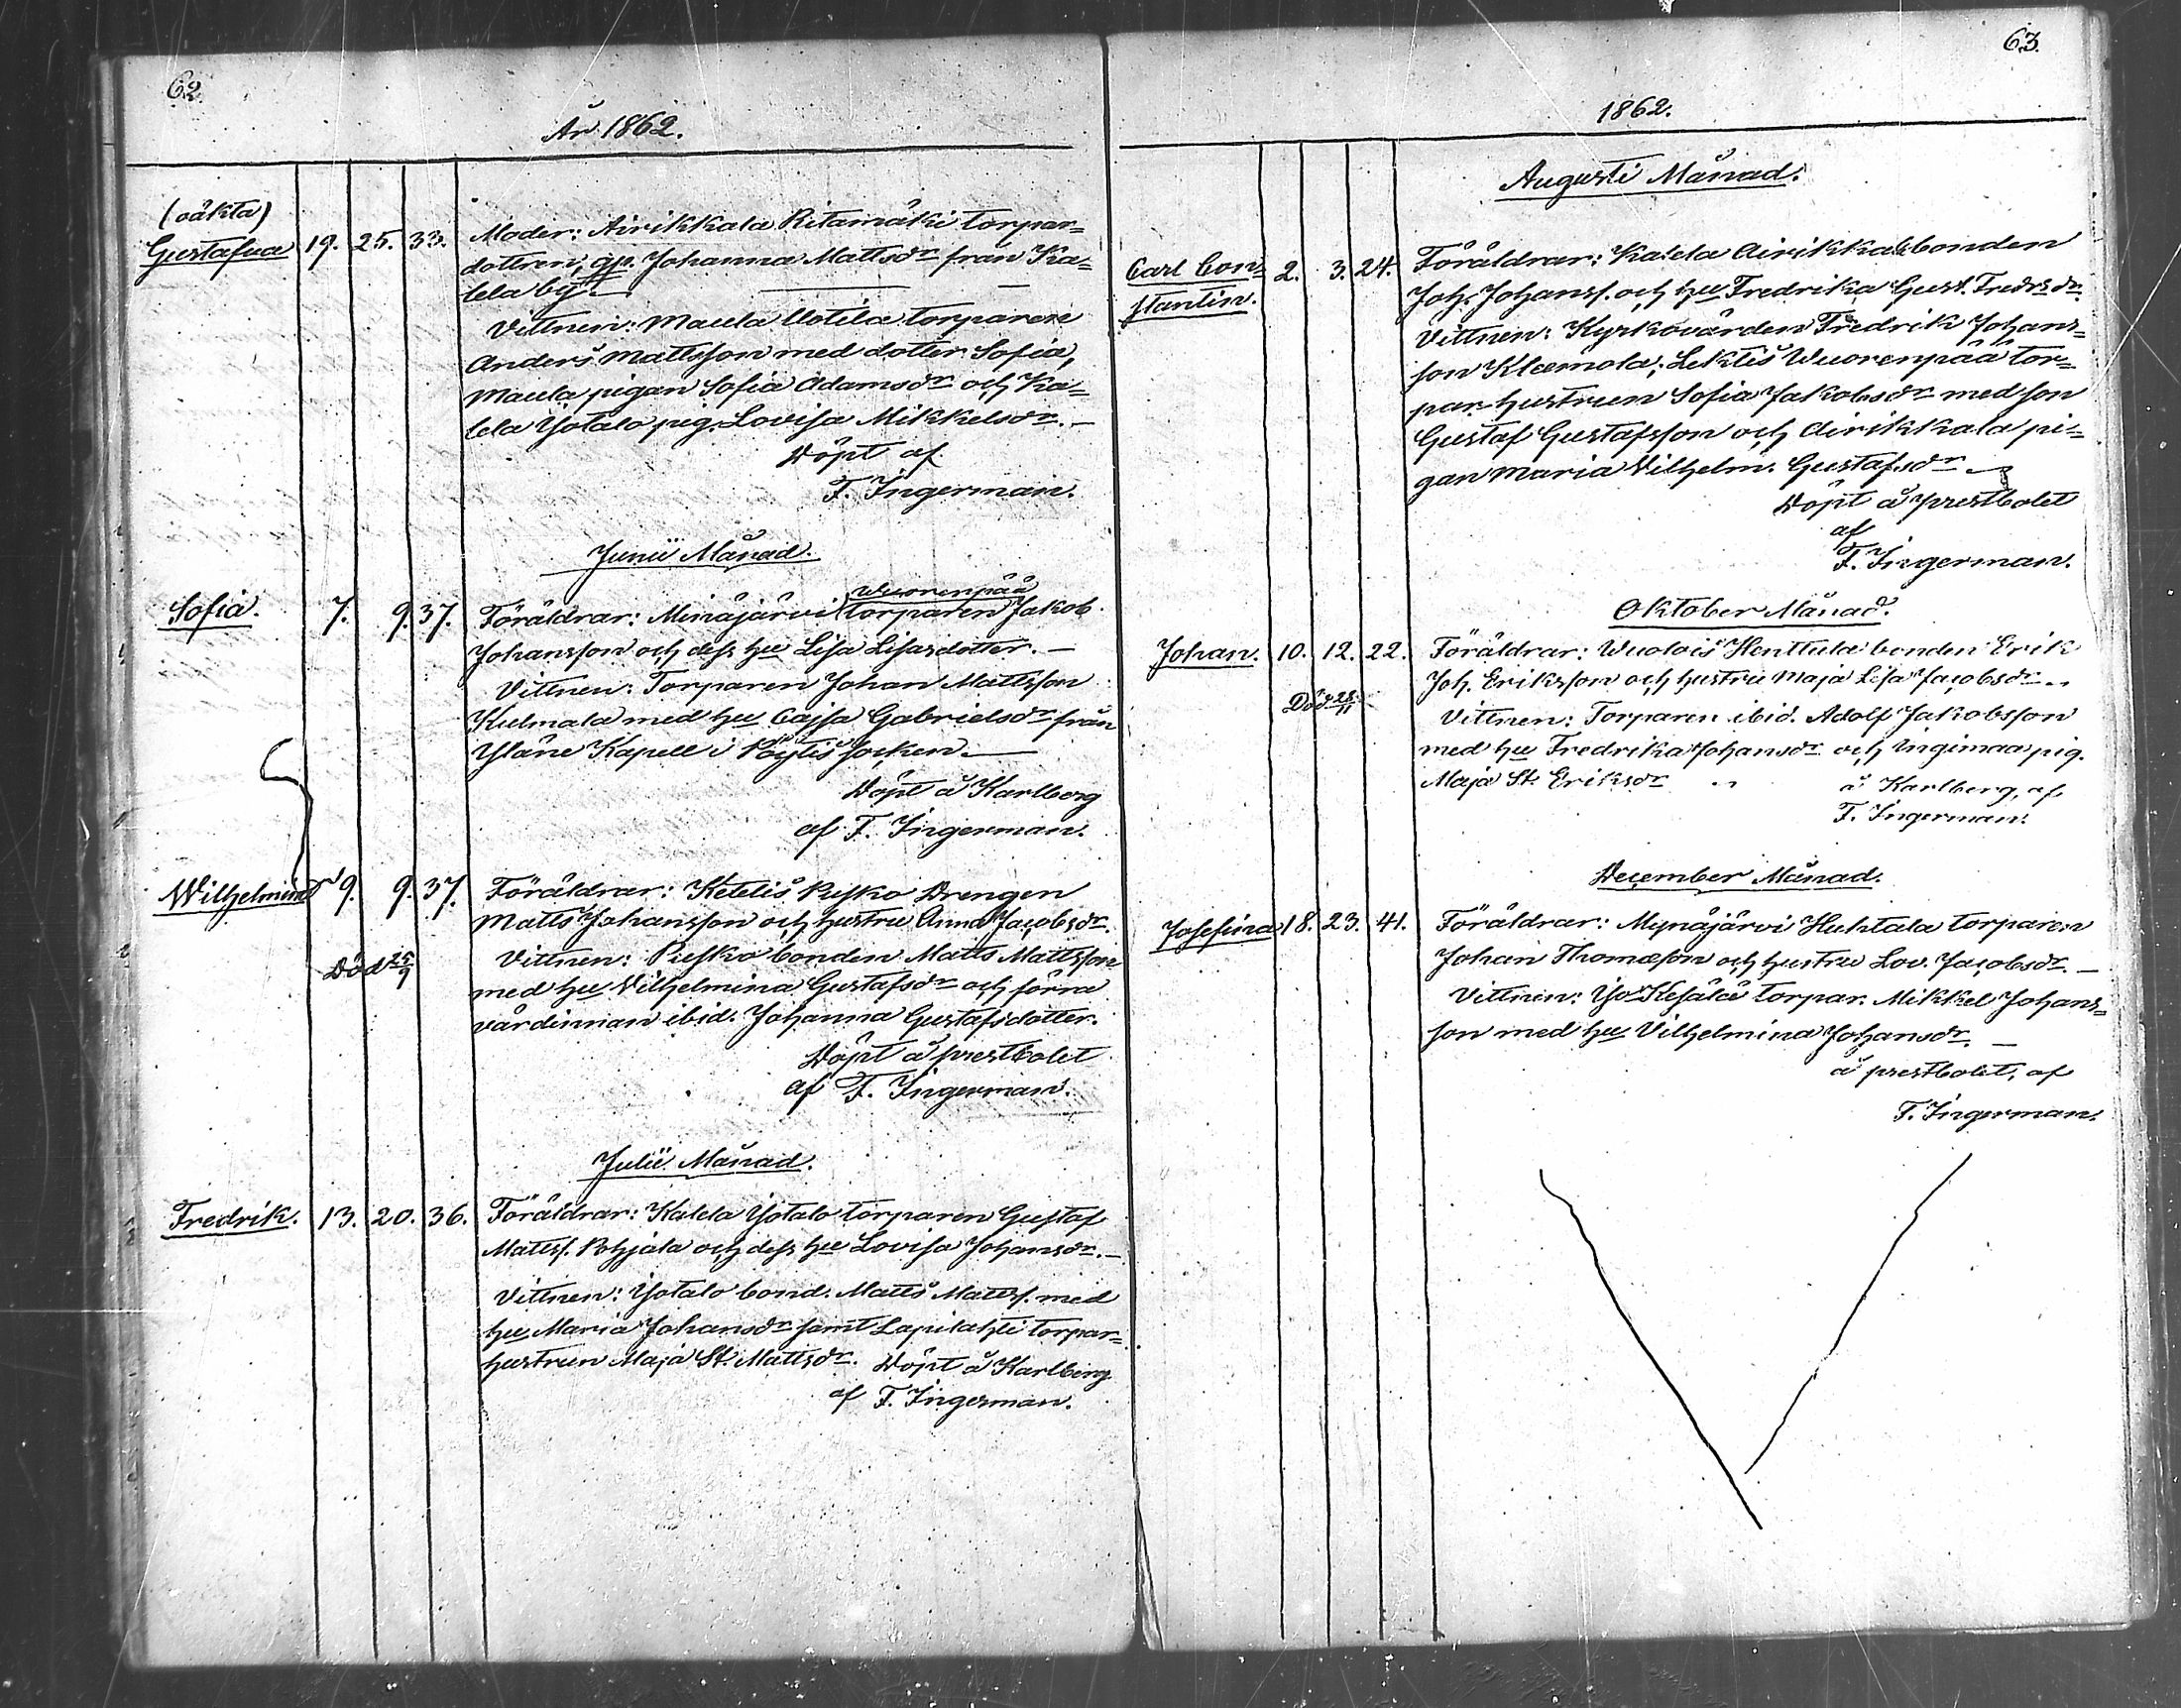 62.
År 1862.
(oäkta)
Gustafva 19. 25. 33. Moder: Airikkala Ritamäki torpar=
dottren, qp. Johanna Mattsdr från Ka=
lela by. —
Vittnen: Maula Uotila torparen
Anders Mattsson med dotter Sofia,
Maula pigan Sofia Adamsdr och Ka=
lela Yotalo pig. Lovisa Mikkelsdr. —
Döpt af
F. Ingerman.
Junii Månad.
Wuorenpää
Sofia. 7. 9. 37. Föräldrar: Minäjärvi torparen Jakob
Johansson och dess hu Lisa Lisasdotter. —
Vittnen: Torparen Johan Mattsson
Kulmala med hu Cajsa Gabrielsdr från
Yläne Kapell i Pöytis socken. —
Döpt å Karlberg
af F. Ingerman.
Wilhelmina 9. 9. 37. Föräldrar: Ketelis Pusko Drengen
Matts Johansson och hustru Anna Jacobsdr.
Död 25/9
Vittnen: Pusko bonden Matts Mattsson
med hu Vilhelmina Gustafsdr och förra
värdinnan ibid. Johanna Gustafsdotter.
Döpt å prestbolet
af F. Ingerman.
Julii Månad.
Fredrik. 13. 20. 36. Föräldrar: Kalela Yotalo torparen Gustaf
Mattss. Pohjala och dess hu Lovisa Johansdr. —
Vittnen: Yotalo bond. Matts Mattss. med
hu Maria Johansdr samt Lapilahti torpar=
hustrun Maja St. Mattsdr. Döpt å Karlberg
af F. Ingerman.
63.
1862.
Augusti Månad.
Carl Con= 2. 3. 24. Föräldrar: Kalela Airikkala bonden
stantin.
Joh. Johanss. och hu Fredrika Gust. Fredrsdr.
Vittnen: Kyrkovärden Fredrik Johans=
son Kleemola; Lektis Wuorenpää tor=
par hustrun Sofia Jakobsdr med son
Gustaf Gustafsson och Airikkala pi=
gan Maria Vilhelm. Gustafsdr —
Döpt å prestbolet
af
F. Ingerman.
Oktober Månad.
Johan. 10. 12. 22. Föräldrar: Wuolois Henttula bonden Erik
Joh. Eriksson och hustru Maja Lisa Jacobsdr.
Död 28/11
Vittnen: Torparen ibid. Adolf Jakobsson
med hu Fredrika Johansdr och Ingimaa pig.
Maja St. Eriksdr
å Karlberg, af
F. Ingerman.
December Månad.
Josefina 18. 23. 41. Föräldrar: Mynäjärvi Huhtala torparen
Johan Thomasson och hustru Lov. Jacobsdr. —
Vittnen: Kesälä torpar. Mikkel Johans=
son med hu Vilhelmina Johansdr. —
å prestbolet, af
F. Ingerman.